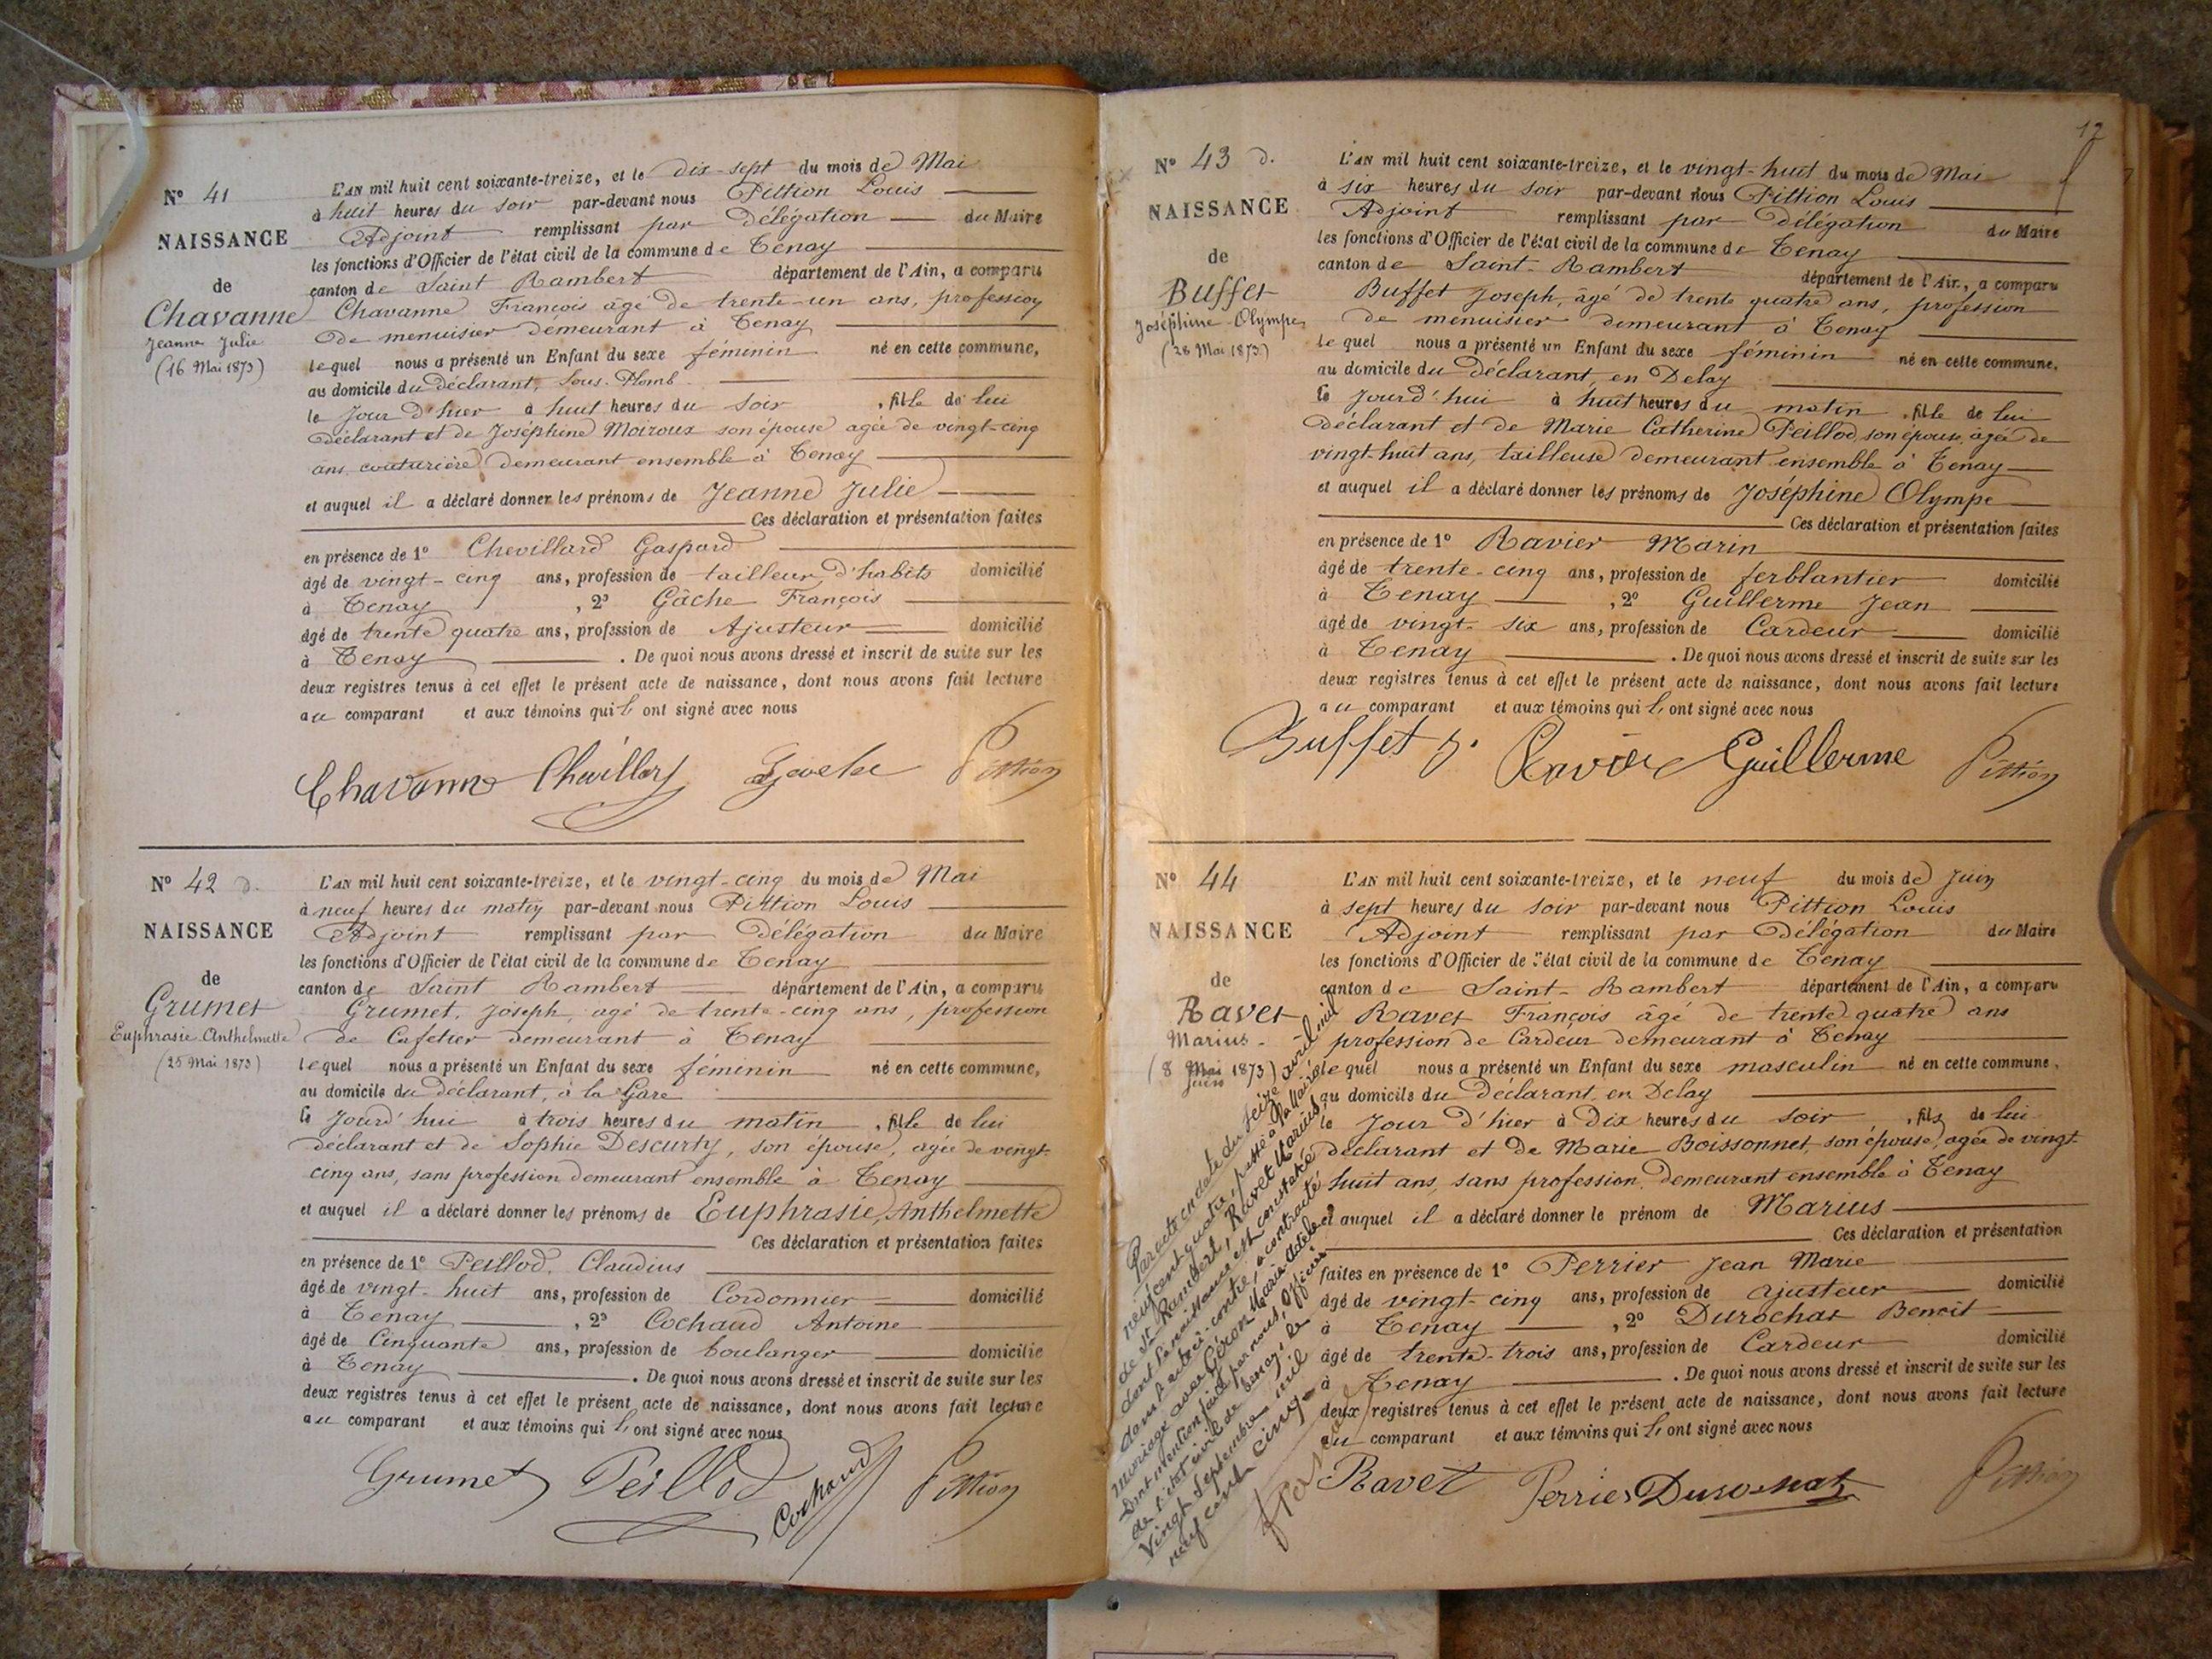 Nº 41
NAISSANCE
de
Chavanne
Jeanne Julie
(16 Mai 1873)
L'AN mil huit cent soixante-treize, et le dix-sept du mois de Mai
à huit heures du soir par-devant nous Pittion Louis
Adjoint remplissant par Délégation du Maire
les fonctions d'Officier de l'état civil de la commune de Tenay
canton de Saint Rambert département de l'Ain, a comparu
Chavanne François âgé de trente-un ans, profession
de menuisier demeurant à Tenay
lequel nous a présenté un Enfant du sexe féminin né en cette commune,
au domicile du Déclarant, Sous-Plomb
le Jour d'hier à huit heures du soir, fille de lui
Déclarant et de Joséphine Moiroux son épouse agée de vingt-cinq
ans, couturière demeurant ensemble à Tenay
et auquel il a déclaré donner les prénoms de Jeanne Julie
Ces déclaration et présentation faites
en présence de 1º Chevillard Gaspard
âgé de vingt-cinq ans, profession de tailleur d'habits domicilié
à Tenay, 2º Gâche François
âgé de trente quatre ans, profession de Ajusteur domicilié
à Tenay. De quoi nous avons dressé et inscrit de suite sur les
deux registres tenus à cet effet le présent acte de naissance, dont nous avons fait lecture
au comparant et aux témoins qui ont signé avec nous
Chavanne Chevillard Gache Pittion
Nº 42 d.
NAISSANCE
de
Grumet
Euphrasie Anthelmette
(25 Mai 1873)
L'AN mil huit cent soixante-treize, et le vingt-cinq du mois de Mai
à neuf heures du matin par-devant nous Pittion Louis
Adjoint remplissant par Délégation du Maire
les fonctions d'Officier de l'état civil de la commune de Tenay
canton de Saint Rambert département de l'Ain, a comparu
Grumet, Joseph, agé de trente-cinq ans, profession
de Cafetier demeurant à Tenay
lequel nous a présenté un Enfant du sexe féminin né en cette commune,
au domicile du Déclarant, à la Gare
le Jourd'hui à trois heures du matin, fille de lui
déclarant et de Sophie Descurty, son épouse, agée de vingt-
cinq ans, sans profession demeurant ensemble à Tenay
et auquel il a déclaré donner les prénoms de Euphrasie, Anthelmette
Ces déclaration et présentation faites
en présence de 1º Peillod, Claudius
âgé de vingt-huit ans, profession de Cordonnier domicilié
à Tenay, 2º Cochaud Antoine
âgé de Cinquante ans, profession de boulanger domicilié
à Tenay. De quoi nous avons dressé et inscrit de suite sur les
deux registres tenus à cet effet le présent acte de naissance, dont nous avons fait lecture
au comparant et aux témoins qui ont signé avec nous
Grumet Peillod Cochaud Pittion
12
Nº 43 d.
NAISSANCE
de
Buffet
Joséphine-Olympe
(28 Mai 1873)
L'AN mil huit cent soixante-treize, et le vingt-huit du mois de Mai
à six heures du soir par-devant nous Pittion Louis
Adjoint remplissant par Délégation du Maire
les fonctions d'Officier de l'état civil de la commune de Tenay
canton de Saint-Rambert département de l'Ain, a comparu
Buffet Joseph, âgé de trente quatre ans, profession
de menuisier demeurant à Tenay
lequel nous a présenté un Enfant du sexe féminin né en cette commune,
au domicile du Déclarant, en Delay
le Jourd'hui à huit heures du matin, fille de lui
Déclarant et de Marie Catherine Peillod, son épouse, âgée de
vingt-huit ans, tailleuse demeurant ensemble à Tenay
et auquel il a déclaré donner les prénoms de Joséphine Olympe
Ces déclaration et présentation faites
en présence de 1º Ravier Marin
âgé de trente-cinq ans, profession de ferblantier domicilié
à Tenay, 2º Guillerme Jean
âgé de vingt-six ans, profession de Cardeur domicilié
à Tenay. De quoi nous avons dressé et inscrit de suite sur les
deux registres tenus à cet effet le présent acte de naissance, dont nous avons fait lecture
au comparant et aux témoins qui ont signé avec nous
Buffet J. Ravier Guillerme Pittion
Nº 44
NAISSANCE
de
Ravet
Marius
(8 Mai 1873)
Juin
L'AN mil huit cent soixante-treize, et le neuf du mois de Juin
à sept heures du soir par-devant nous Pittion Louis
Adjoint remplissant par Délégation du Maire
les fonctions d'Officier de l'état civil de la commune de Tenay
canton de Saint-Rambert département de l'Ain, a comparu
Ravet François âgé de trente quatre ans
profession de Cardeur demeurant à Tenay
lequel nous a présenté un Enfant du sexe masculin né en cette commune,
au domicile du Déclarant, en Delay
le Jour d'hier à Dix heures du soir, fils de lui
déclarant et de Marie Boissonnet, son épouse, agée de vingt-
huit ans, sans profession, demeurant ensemble à Tenay
et auquel il a déclaré donner le prénom de Marius
Ces déclaration et présentation
faites en présence de 1º Perrier Jean Marie
âgé de vingt-cinq ans, profession de ajusteur domicilié
à Tenay, 2º Durochat Benoit
âgé de trente-trois ans, profession de Cardeur domicilié
à Tenay. De quoi nous avons dressé et inscrit de suite sur les
deux registres tenus à cet effet le présent acte de naissance, dont nous avons fait lecture
au comparant et aux témoins qui ont signé avec nous
Ravet Perrier Durochat Pittion
Par acte en date du seize avril mil
neuf cent quatre, passé à
de St Rambert, Ravet Marius,
dont la naissance est constatée
dans l'acte ci-contre, a contracté
mariage avec Géron Marie Adèle
Dont mention faite par nous, Officier
de l'état civil de Tenay, le
Vingt Septembre mil
neuf cent cinq